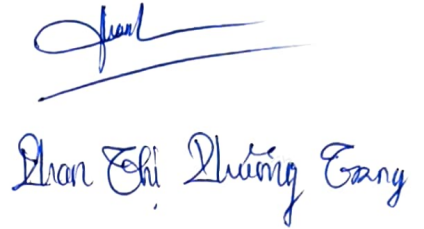 Phan Thị Phương Trang